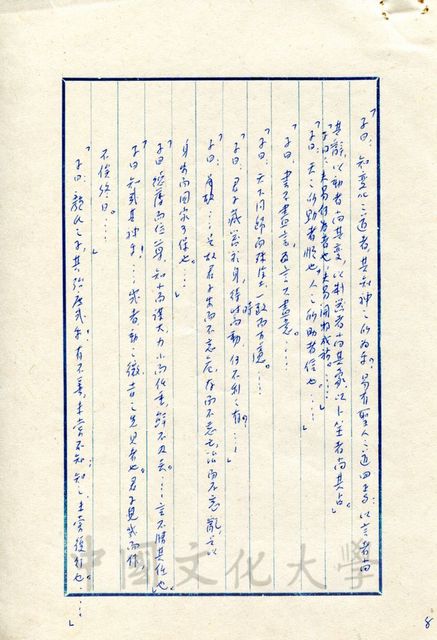 「子曰：知變化之道者，其知神之所為乎！易有聖人之道四焉：以言者尚
其辭，以動者尚其變，以制器者尚其象，以卜筮者尚其占。」
「子曰：夫易何為者也？夫易開物成務，……
「子曰：天之所助者順也，人之所助者信也……」
「子曰：書不盡言，言不盡意。……
「子曰：天下同歸而殊塗，一致而百慮。……
「子曰：君子藏器於身，待時而動，何不利之有？……」
「子曰：……是故君子安而不忘危，存而不忘亡，治而不忘亂，是以
身安而國家可保也。」
「子曰：德薄而位尊，知小而謀大，力小而任重，鮮不及矣。……言不勝其任也。」
「子曰：知幾其神乎！……幾者動之微，吉之先見者也。君子見幾而作，
不俟終日。……」
「子曰：顏氏之子，其殆庶幾乎！有不善，未嘗不知；知之，未嘗復行也。……」
中國文化大學
8